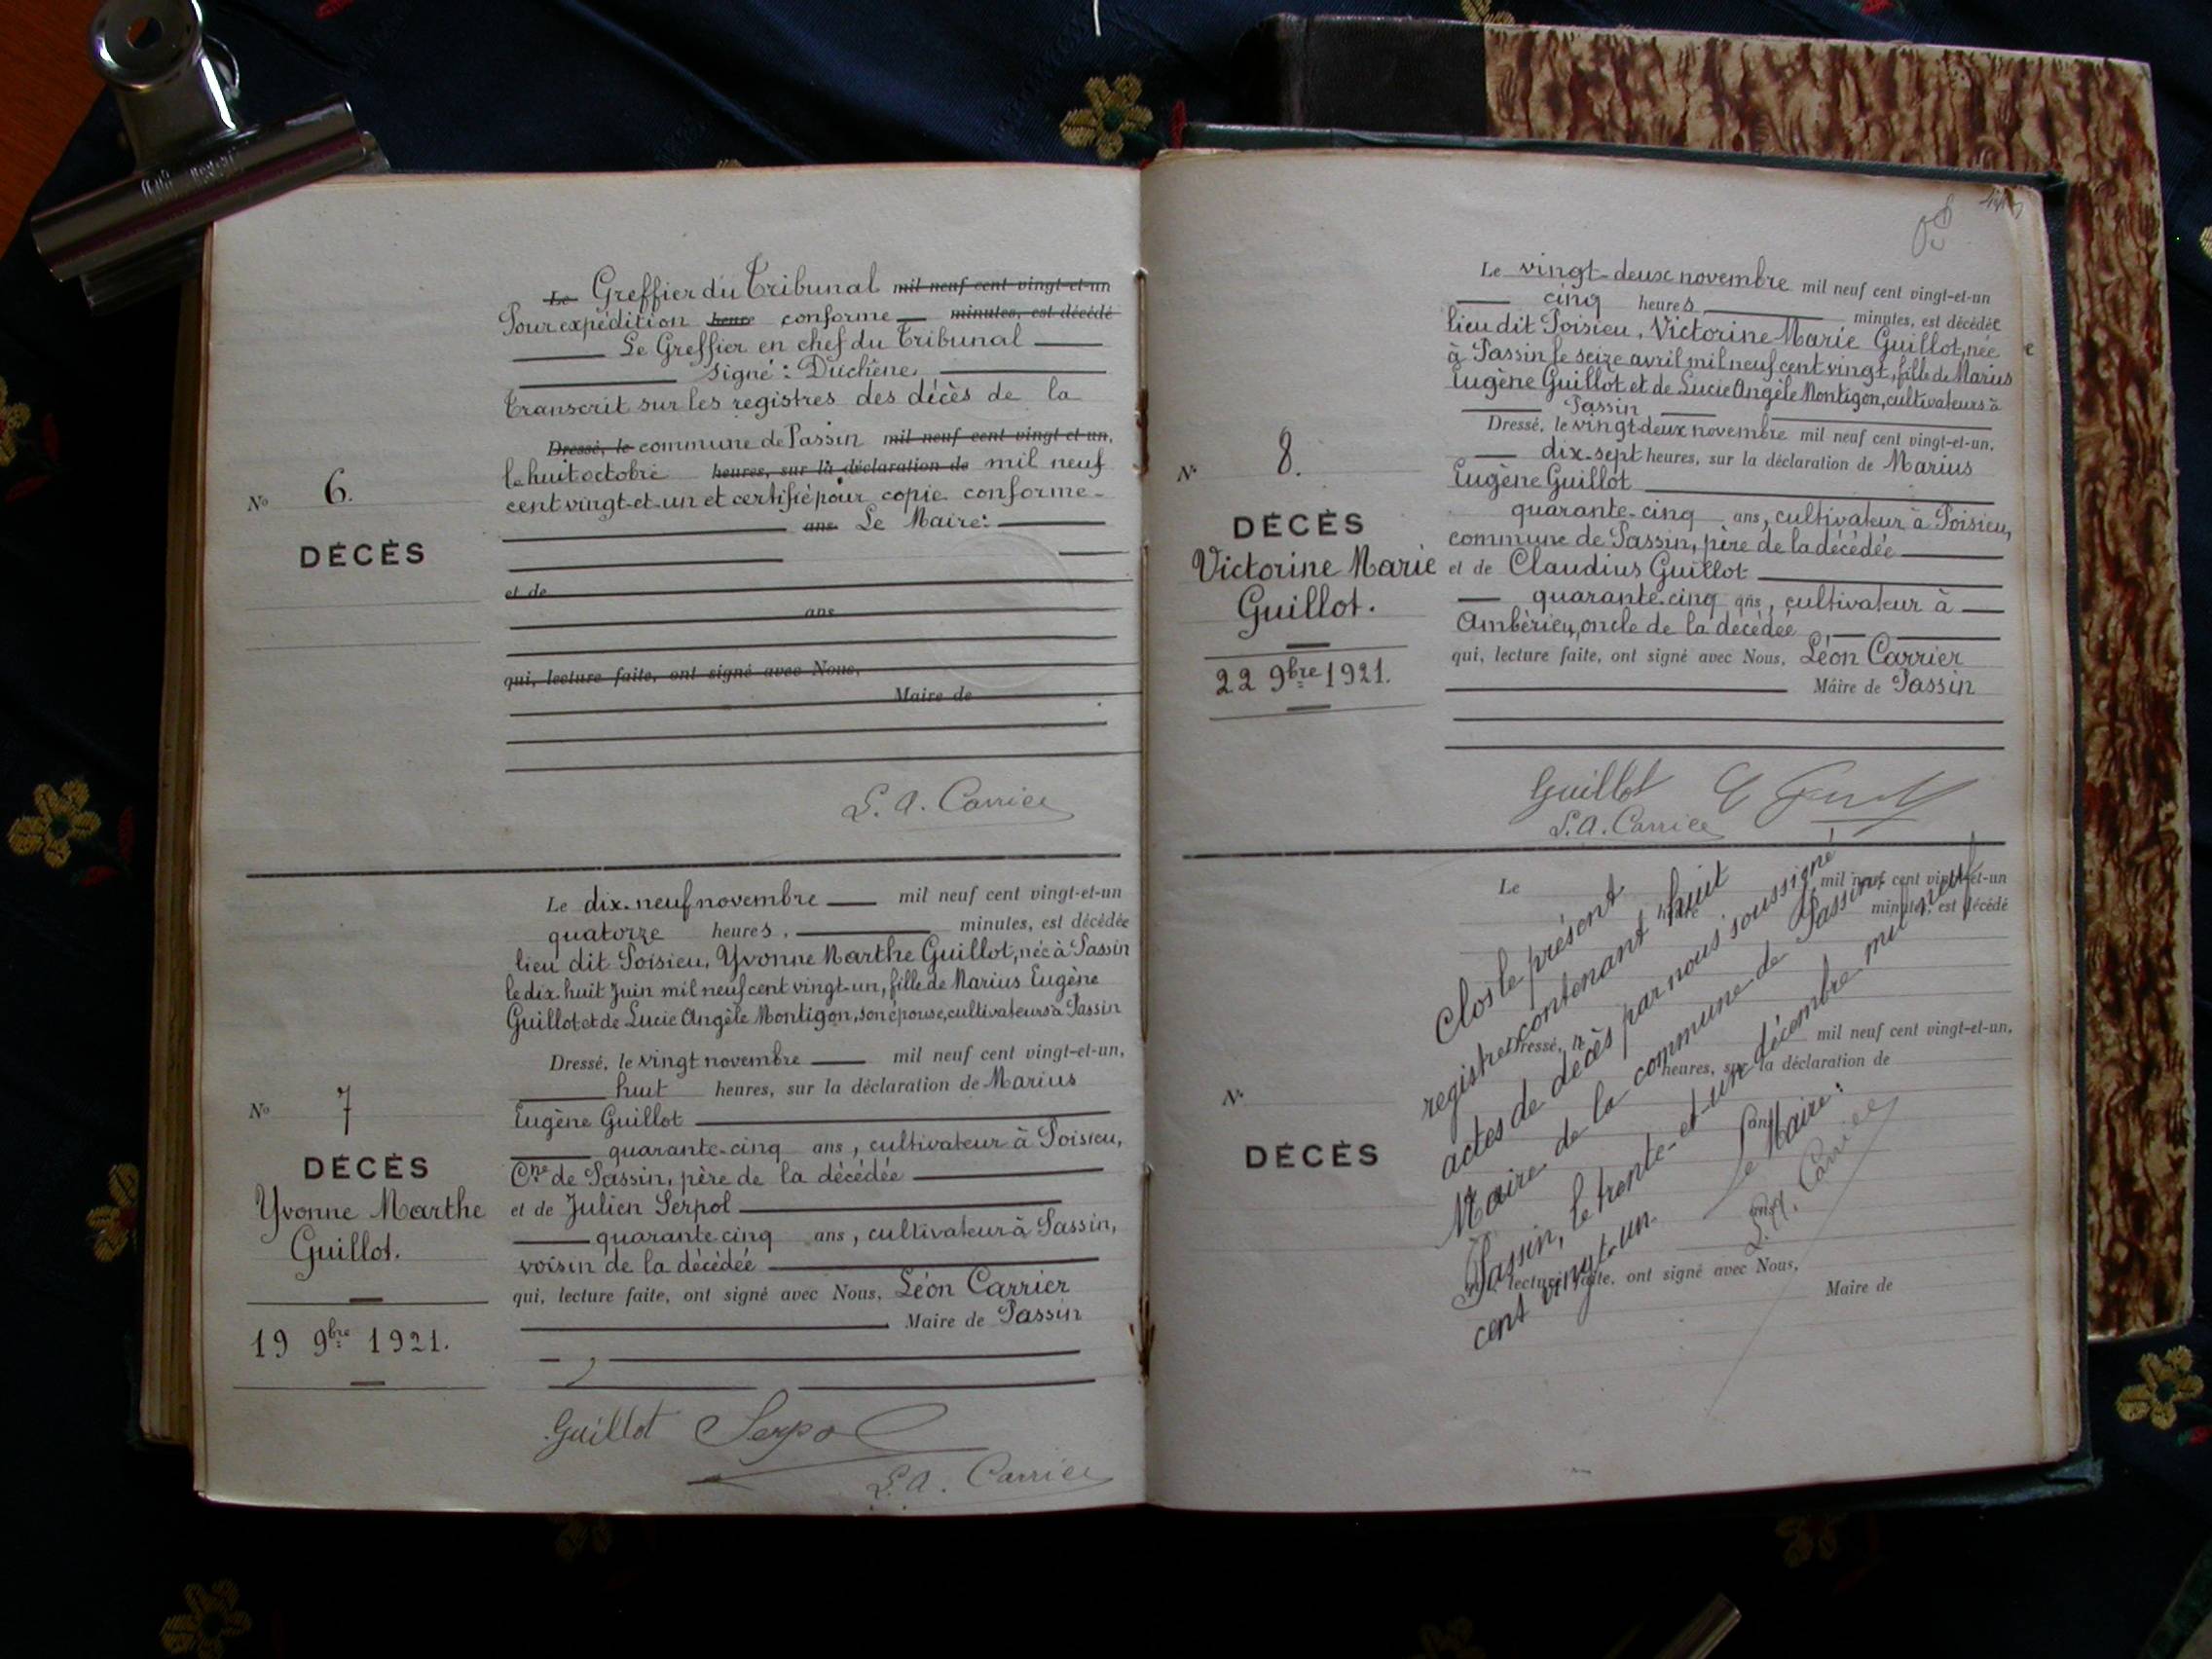 Le Greffier du Tribunal mil neuf cent vingt-et-un
Pour expédition heure conforme minutes, est décédé
Le Greffier en chef du Tribunal
signé : Duchêne.
Transcrit sur les registres des décès de la
Dressé, le commune de Passin mil neuf cent vingt et un,
le huit octobre heures, sur la déclaration de mil neuf
cent vingt-et-un et certifié pour copie conforme-
ans Le Maire:
et de
ans
qui, lecture faite, ont signé avec Nous,
Maire de
L. A. Carrier
No 6.
DÉCÈS
Le dix-neuf novembre mil neuf cent vingt-et-un
quatorze heures, minutes, est décédée
lieu dit Poisieu, Yvonne Marthe Guillot, née à Passin
le dix-huit Juin mil neuf cent vingt-un, fille de Marius Eugène
Guillot et de Lucie Angèle Montigon, son épouse, cultivateurs à Passin
Dressé, le vingt novembre mil neuf cent vingt-et-un,
huit heures, sur la déclaration de Marius
Eugène Guillot
quarante-cinq ans, cultivateur à Poisieu,
Cne de Passin, père de la décédée
et de Julien Serpol
quarante cinq ans, cultivateur à Passin,
voisin de la décédée
qui, lecture faite, ont signé avec Nous, Léon Carrier
Maire de Passin
Guillot Serpol
L. A. Carrier
No 7
DÉCÈS
Yvonne Marthe
Guillot.
19 9bre 1921.
Le vingt-deux novembre mil neuf cent vingt-et-un
cinq heures minutes, est décédée
lieu dit Poisieu, Victorine Marie Guillot, née
à Passin le seize avril mil neuf cent vingt, fille de Marius
Eugène Guillot et de Lucie Angèle Montigon, cultivateurs à
Passin
Dressé, le vingt-deux novembre mil neuf cent vingt-et-un,
dix-sept heures, sur la déclaration de Marius
Eugène Guillot
quarante-cinq ans, cultivateur à Poisieu,
commune de Passin, père de la décédée
et de Claudius Guillot
quarante-cinq ans, cultivateur à
Ambérieu, oncle de la décédée
qui, lecture faite, ont signé avec Nous, Léon Carrier
Maire de Passin
Guillot
L. A. Carrier
No 8.
DÉCÈS
Victorine Marie
Guillot.
22 9bre 1921.
Le mil neuf cent vingt-et-un
heure minutes, est décédé
Dressé, le mil neuf cent vingt-et-un,
heures, sur la déclaration de
ans
ans
qui, lecture faite, ont signé avec Nous,
Maire de
No
DÉCÈS
Clos le présent
registre contenant huit
actes de décès par nous soussigné
Maire de la commune de Passin,
Passin, le trente-et-un décembre mil neuf
cent vingt-un.
Le Maire:
L. A. Carrier